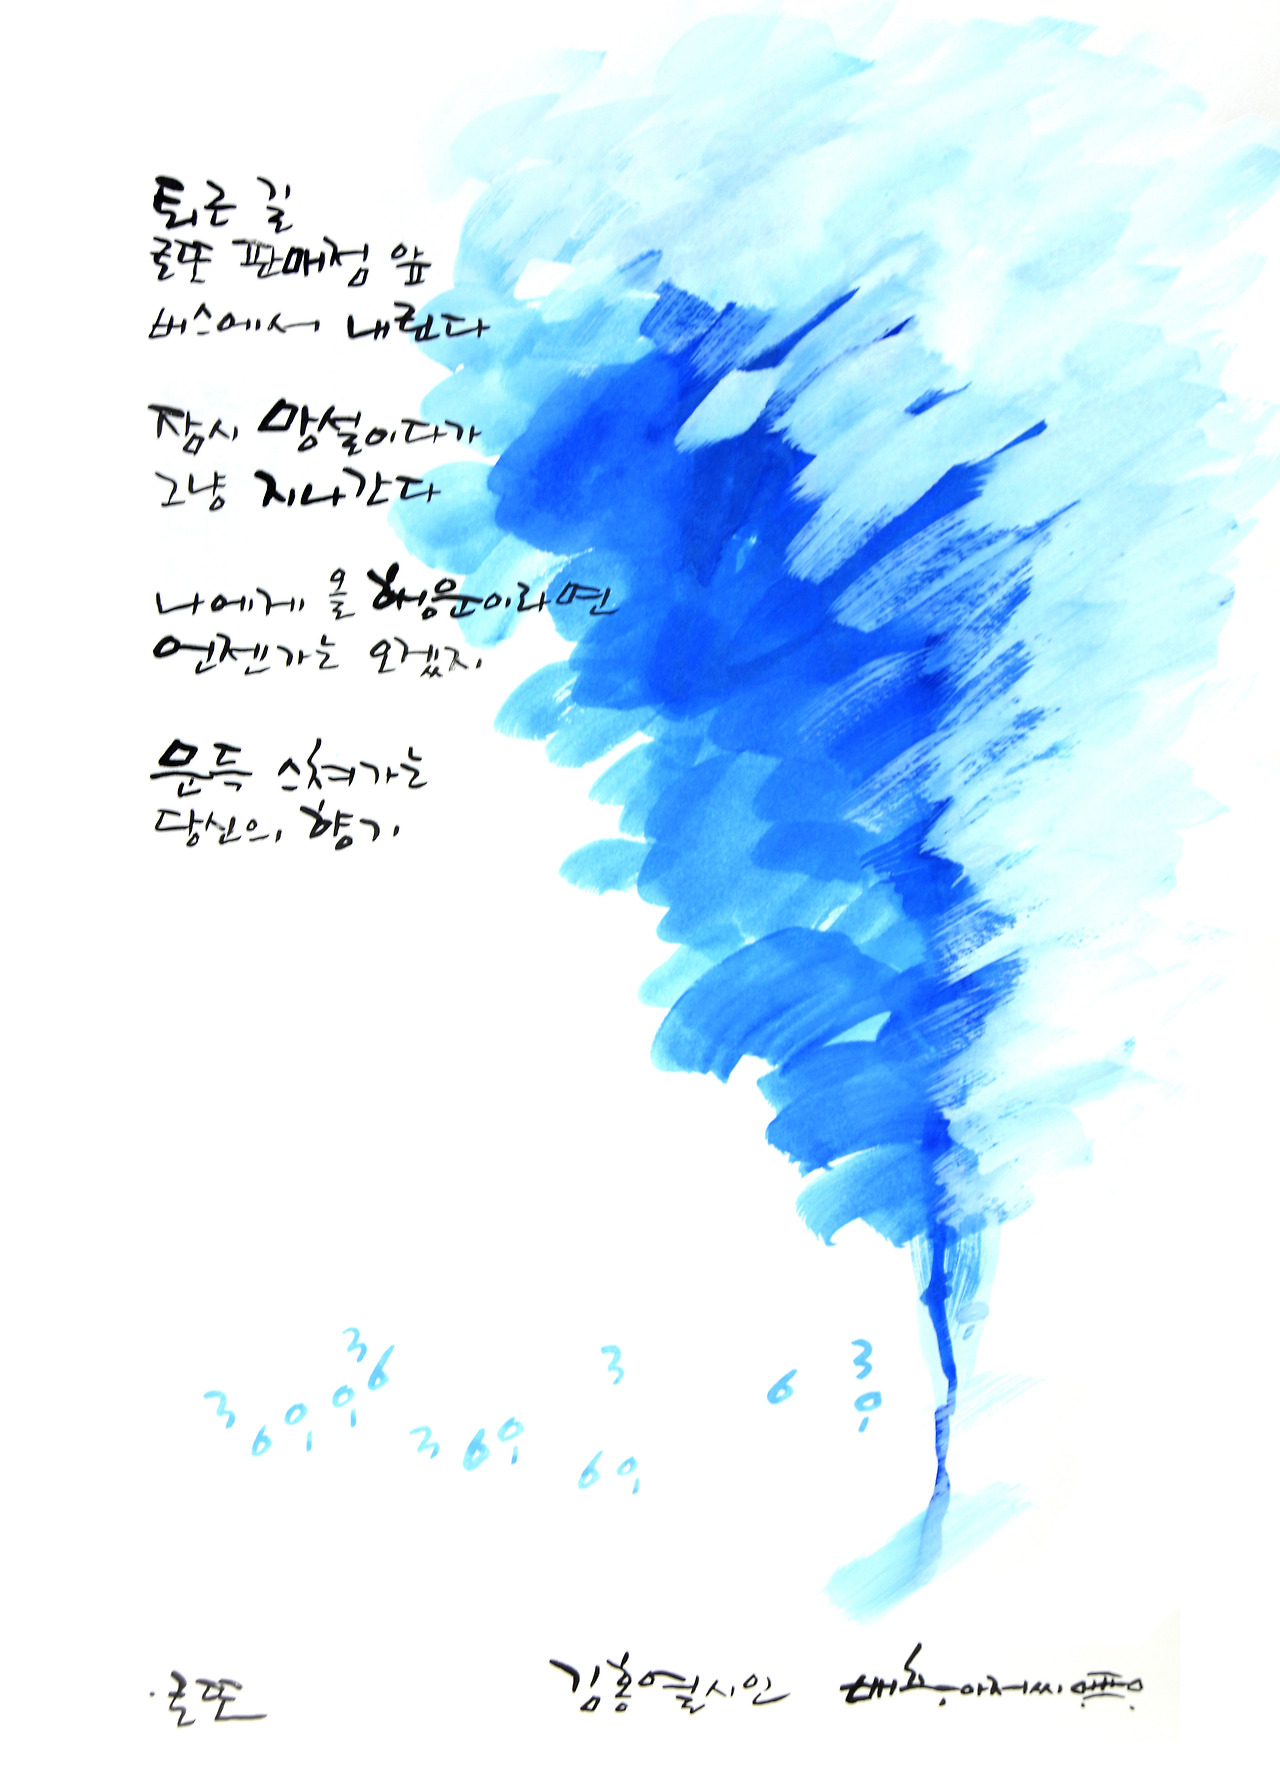 퇴근 길
로또 판매점 앞
버스에서 내린다
잠시 망설이다가
그냥 지나간다
나에게 올 행운이라면
언젠가는 오겠지
문득 스쳐가는
당신의 향기
3 6 9
3 6 9
3 6 9
3 6 9
6 3 9
·로또
김홍열시인